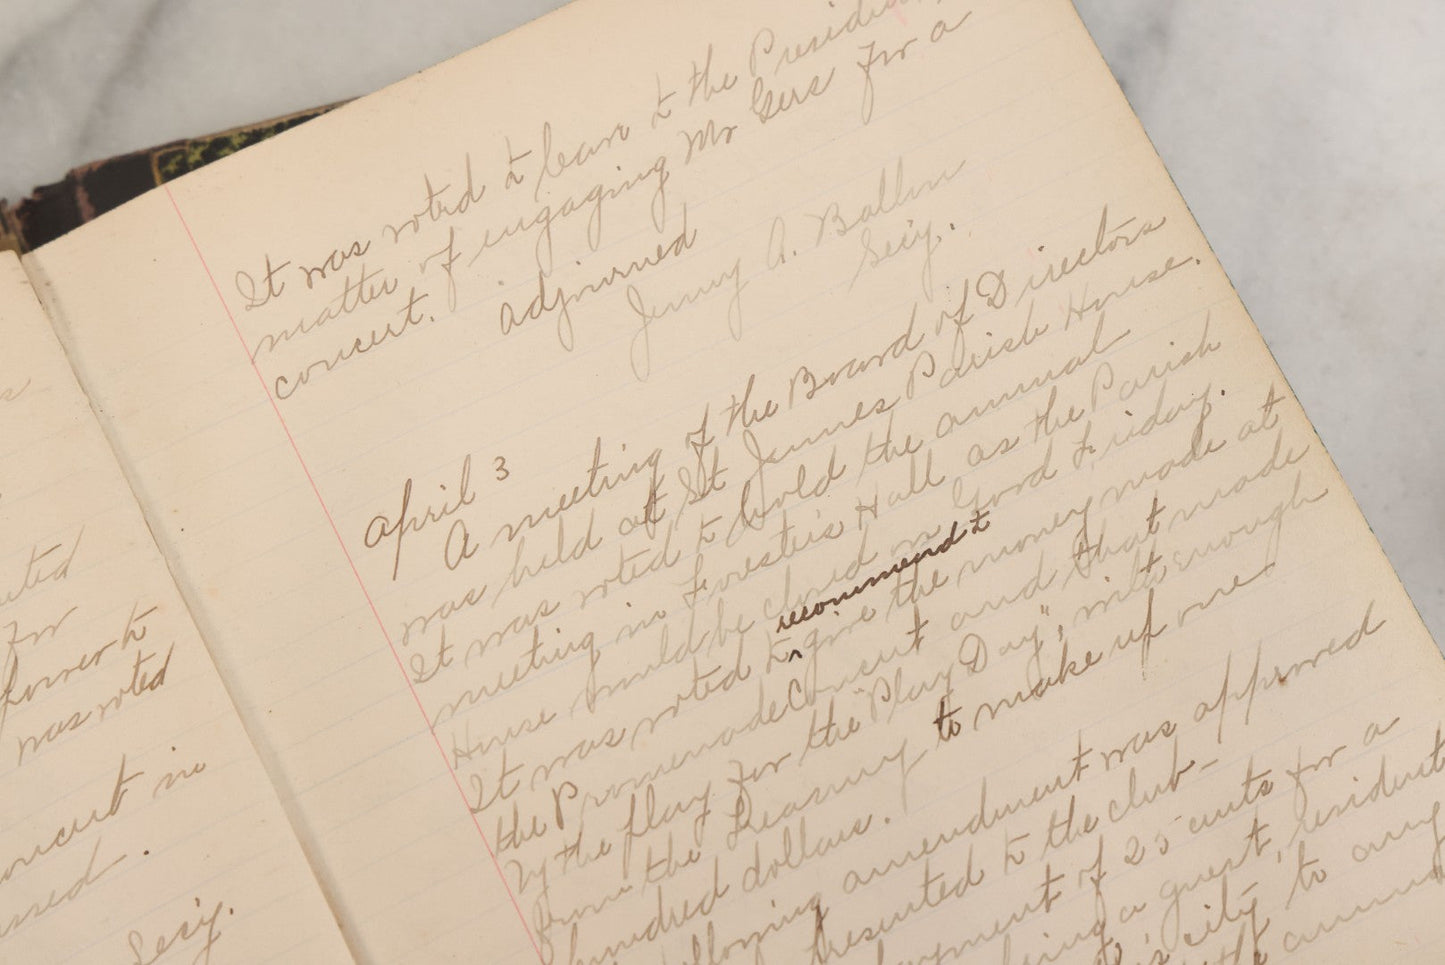 uted
for
power to
was voted
concert in
Secy.
It was voted to leave to the President
matter of engaging Mr Geer for a
concert.
adjourned
Jenny A. Ballou
Secy.
april 3
A meeting of the Board of Directors
was held at St James Parish House.
It was voted to hold the annual
meeting in Forester's Hall as the Parish
House would be closed on Good Friday.
recommend to
It was voted to ‸ give the money made at
the Promenade Concert and that made
by the play for the "Play Day", with enough
from the Treasury to make up one
hundred dollars.
following amendment was approved
presented to the club-
payment of 25 cents for a
being a guest, resident
city to any
the annual